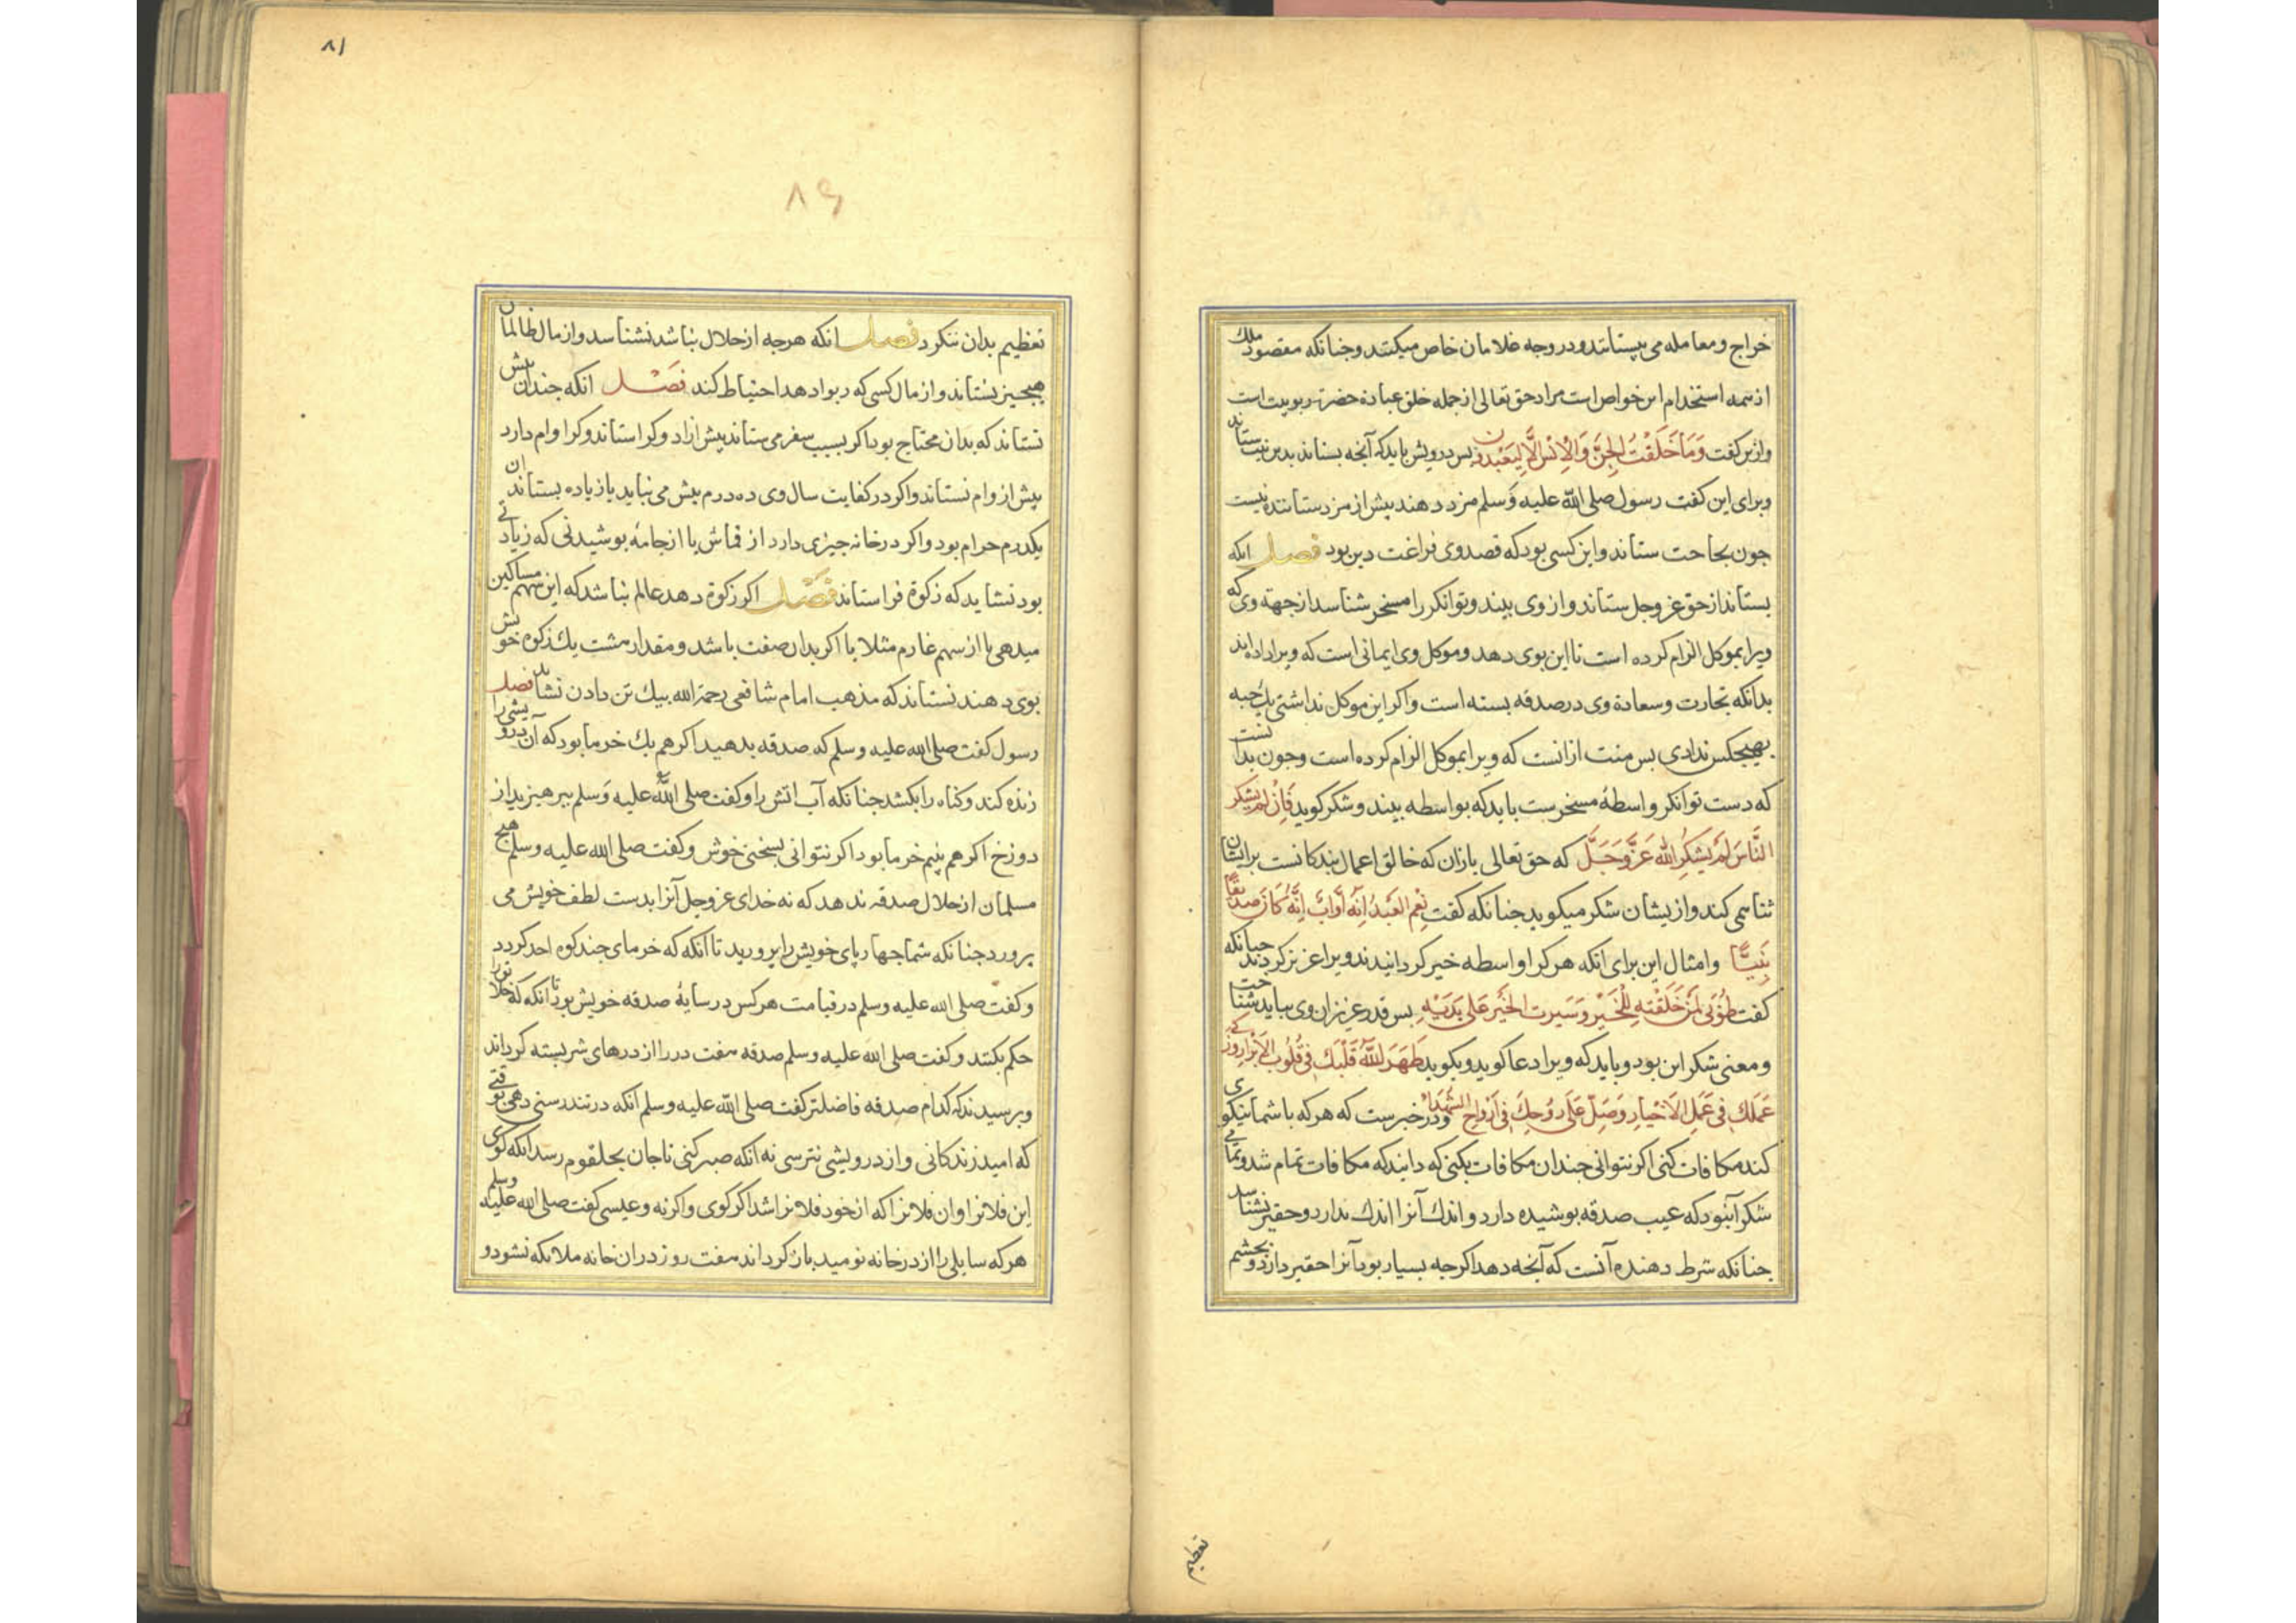 خراج و معامله می بستانند و در وجه غلامان خاص میکنند و جنانکه مقصود ملک
از همه استخدام این خواص است مراد حق تعالی از جمله خلق عبادة حضرت ربوبیت است
و ازین کفت وَمَا خَلَقْتُ الْجِنَّ وَالْاِنْسَ اِلَّا لِیَعْبُدُونِ بس درویش باید که آنجه بستاند بدین نیت ستاند
و برای این کفت رسول صلی الله علیه وسلم مزد دهند بیش از مزد ستانند نیست
جون بحاجت ستاند و این کسی بود که قصد وی فراغت دین بود فصل انکه
بستاند از حق عز وجل ستاند و از وی بیند و توانکر را مسخر شناسد از جهة وی که
ویرا بموکل الزام کرده است تا این بوی دهد و موکل وی ایمانی است که ویرا داده اند
بدانکه تجارت و سعادة وی در صدقه بسته است و اکر این موکل نداشتی یک حبه
بهیجکس ندادی بس منت ازانست که ویرا بموکل الزام کرده است و جون بدانست
که دست توانکر واسطهٔ مسخرست باید که بواسطه بیند و شکر کوید فَاِنْ لَمْ یَشْکُر
النَّاسَ لَمْ یَشْکُرِ اللّٰه عَزَّوَجَلَّ که حق تعالی بازان که خالق اعمال بندکانست برایشان
ثنا می کند و ازیشان شکر میکوید جنانکه کفت نِعْمَ الْعَبْدُ اِنَّهُ اَوَّابٌ اِنَّهُ کَانَ صِدِّیقًا
نَبِیًّا و امثال این برای انکه هر کرا واسطه خیر کردانیدند ویرا عزیز کردند جنانکه
کفت طُوْبٰی لِمَنْ خَلَقْتَهُ لِلْخَیْرِ وَ یَسَّرت الخَیْرَ عَلٰی یَدَیْهِ بس قدر عزیزان وی بباید شناخت
و معنی شکر این بود و باید که ویرا دعا کوید و بکوید طَهَّرَ اللّٰهُ قَلْبَكَ فِی قُلُوبِ الْاَبْرَارِ وَ زَکّٰی
عَمَلَكَ فِی عَمَلِ الْاَخْیَارِ وَ صَلّٰی عَلٰی رُوْحِكَ فِی اَرْوَاحِ الشُّهَدَاءِ و در خبرست که هر که با شما نیکوی
کند مکافات کنی اکر نتوانی جندان مکافات بکنی که دانید که مکافات تمام شد و تمامی
شکر آنبود که عیب صدقه بوشیده دارد و اندک آنرا اندک ندارد و حقیر نشناسد
جنانکه شرط دهنده آنست که آنجه دهد اکرجه بسیار بود آنرا حقیر دارد و بجشم
تعظیم
۸۱
۸۶
تعظیم بدان ننکرد فصل انکه هرجه از حلال نباشد نشناسد و از مال ظالمان
هیجیز نستاند و از مال کسی که ربوا دهد احتیاط کند فصل انکه جندان بیش
نستاند که بدان محتاج بود اکر بسبب سفر می ستاند بیش از زاد و کرا ستاند و کر اوام دارد
بیش از وام نستاند و اکر در کفایت سال وی ده درم بیش می نباید یازیاده بستاند ان
یکدرم حرام بود و اکر در خانه جیزی دارد از قماش یا از جامهٔ بوشیدنی که زیادتی
بود نشاید که زکوة فراستاند فصل اکر زکوة دهد عالم نباشد که این سهم مساکین
میدهی یا از سهم غارم مثلا یا اکر بدان صفت باشد و مقدار هشت یک زکوة خویش
بوی دهند نستاند که مذهب امام شافعی رحمة الله بیک تن دادن نشاید فصل
رسول کفت صلی الله علیه وسلم که صدقه بدهید اکر هم یک خرما بود که آن درویشی را
زنده کند و کناه را بکشد جنانکه آب اتش را و کفت صلی الله علیه وسلم ببرهیزید از
دوزخ اکر هم بنیم خرما بود اکر نتوانی بسخنی خوش و کفت صلی الله علیه وسلم هیج
مسلمان از حلال صدقه ندهد که نه خدای عز وجل آنرا بدست لطف خویش می
برورد جنانکه شما جهاربای خویش را برورید تا آنکه که خرمای جند کوه احد کردد
و کفت صلی الله علیه وسلم در قیامت هر کس در سایهٔ صدقه خویش بود تا انکه که خلا
حکم بکنند و کفت صلی الله علیه وسلم صدقه هفت در را از درهای شر بسته کرداند
و برسیدند که کدام صدقه فاضلتر کفت صلی الله علیه وسلم آنکه در تندرستی دهی وقتی
که امید زندکانی و از درویشی نترسی نه آنکه صبر کنی تا جان بحلقوم رسد انکه کوی
این فلانرا و ان فلانرا که از خود فلانرا شد اکر کوی و اکر نه و عیسی کفت صلی الله علیه وسلم
هر که سایلی را از در خانه نومید باز کرداند هفت روز در ان خانه ملائکه نشود و